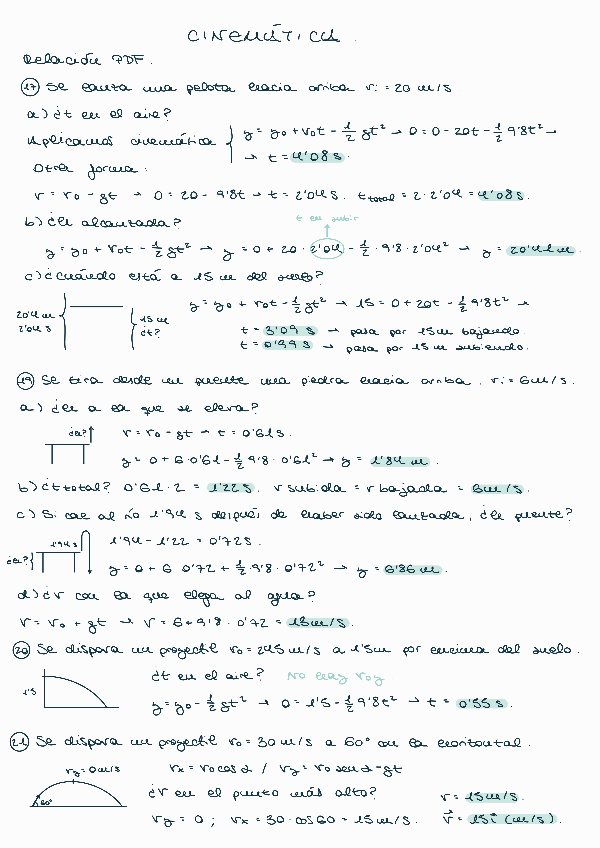 CINEMÁTICA.
Relación PDF.
17 Se lanza una pelota hacia arriba vi = 20 m/s
a) ¿t en el aire?
Aplicamos cinemática { y = y0 + v0t - 1/2 gt² → 0 = 0 - 20t - 1/2 9'8t² →
→ t = 4'08 s.
Otra forma:
v = v0 - gt → 0 = 20 - 9'8t → t = 2'04 s. t total = 2 · 2'04 = 4'08 s.
b) ¿h alcanzada?
t en subir
y = y0 + v0t - 1/2 gt² → y = 0 + 20 · 2'04 - 1/2 · 9'8 · 2'04² → y = 20'41 m.
c) ¿Cuándo está a 15 m del suelo?
y = y0 + v0t - 1/2 gt² → 15 = 0 + 20t - 1/2 9'8t² →
20'4 m
2'04 s
15 m
¿t?
t = 3'09 s → pasa por 15m bajando.
t = 0'99 s → pasa por 15 m subiendo.
19 Se tira desde un puente una piedra hacia arriba. vi = 6 m/s.
a) ¿h a la que se eleva?
¿h? v = v0 - gt → t = 0'61 s.
y = 0 + 6 · 0'61 - 1/2 9'8 · 0'61² → y = 1'84 m.
b) ¿t total? 0'61 · 2 = 1'22 s. v subida = v bajada = 6 m/s.
c) Si cae al río 1'94 s después de haber sido lanzada, ¿h puente?
1'94 s 1'94 - 1'22 = 0'72 s.
¿h? y = 0 + 6 0'72 + 1/2 · 9'8 · 0'72² → y = 6'86 m.
d) ¿v con la que llega al agua?
v = v0 + gt → v = 6 + 9'8 · 0'72 = 13 m/s.
20 Se dispara un proyectil v0 = 245 m/s a 1'5m por encima del suelo.
¿t en el aire? No hay v0y
1'5 y = y0 - 1/2 gt² → 0 = 1'5 - 1/2 9'8t² → t = 0'55 s.
21 Se dispara un proyectil v0 = 30 m/s a 60° con la horizontal.
vy = 0 m/s vx = v0 cos α / vy = v0 sen α - gt
60° ¿v en el punto más alto? v = 15 m/s.
vy = 0 ; vx = 30 · cos 60 = 15 m/s. v⃗ = 15 i⃗ (m/s).